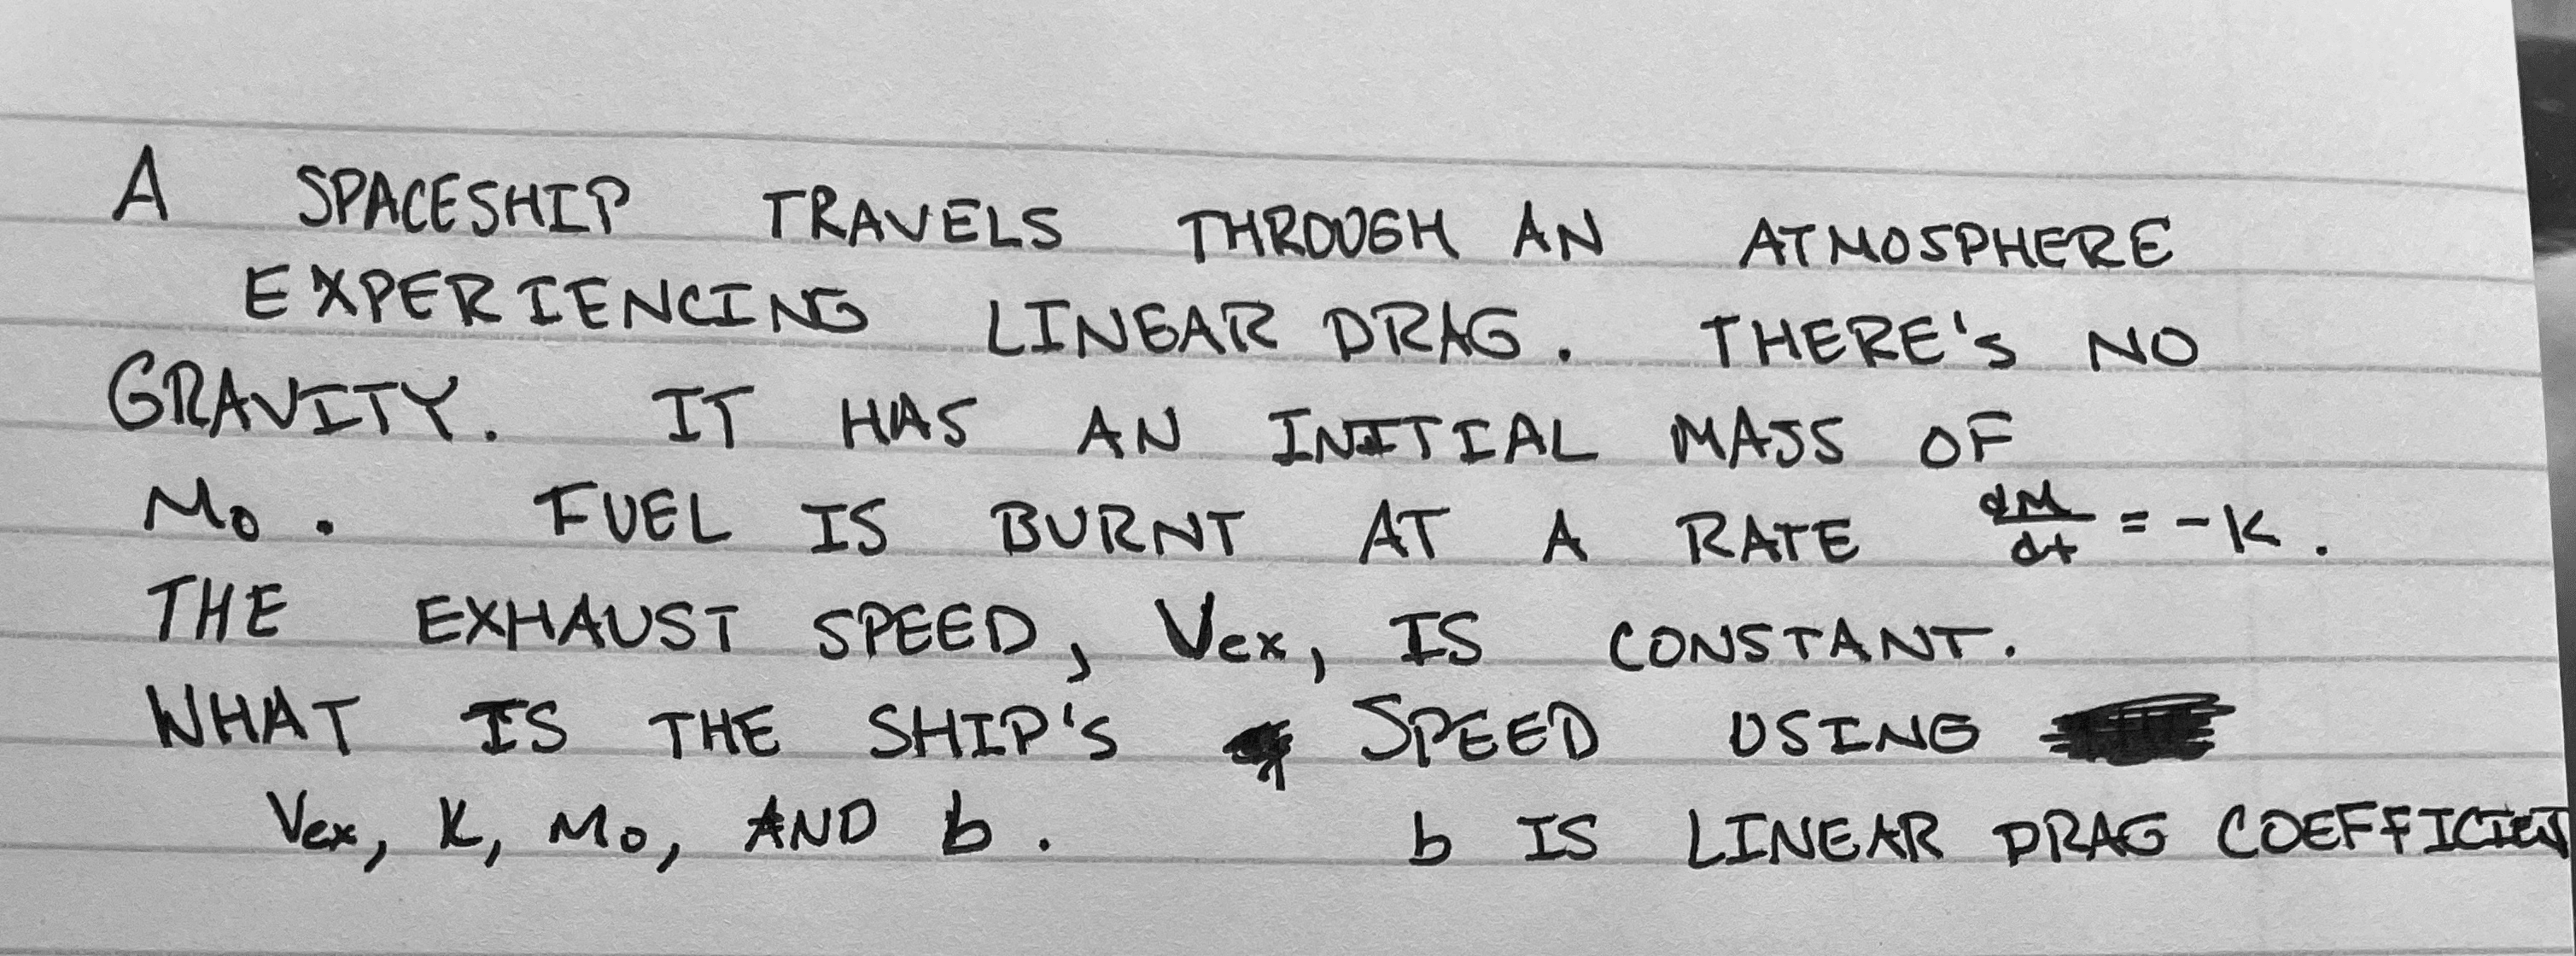 A SPACESHIP TRAVELS THROUGH AN ATMOSPHERE
EXPERIENCING LINEAR DRAG. THERE'S NO
GRAVITY. IT HAS AN INITIAL MASS OF
M₀. FUEL IS BURNT AT A RATE dM/dt = -K.
THE EXHAUST SPEED, Vex, IS CONSTANT.
WHAT IS THE SHIP'S SPEED USING
Vex, K, M₀, AND b. b IS LINEAR DRAG COEFFICIENT